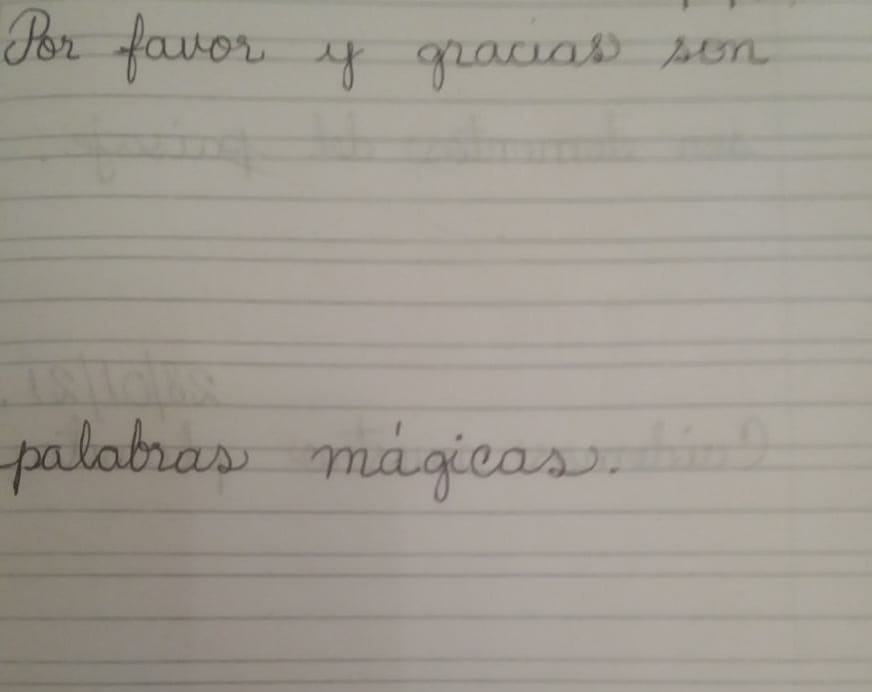 Por favor y gracias son
palabras mágicas.